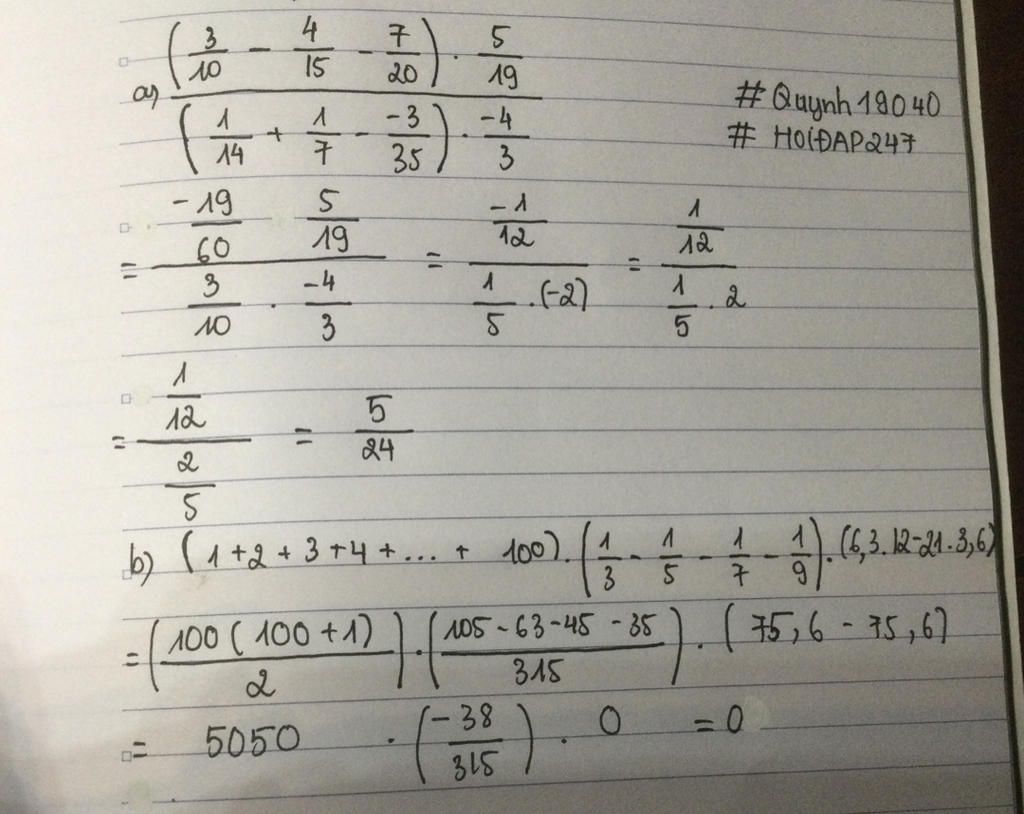 a) (3/10 - 4/15 - 7/20) . 5/19
(1/14 + 1/7 - -3/35) . -4/3
#Quynh19040
# HOIĐAP247
= -19/60 5/19 / 3/10 . -4/3 = -1/12 / 1/5 . (-2) = 1/12 / 1/5 . 2
= 1/12 / 2/5 = 5/24
b) (1+2+3+4+...+ 100).(1/3 - 1/5 - 1/7 - 1/9).(6,3.12-21.3,6)
= (100(100+1)/2).(105-63-45-35/315).(75,6-75,6)
= 5050 . (-38/315) . 0 = 0